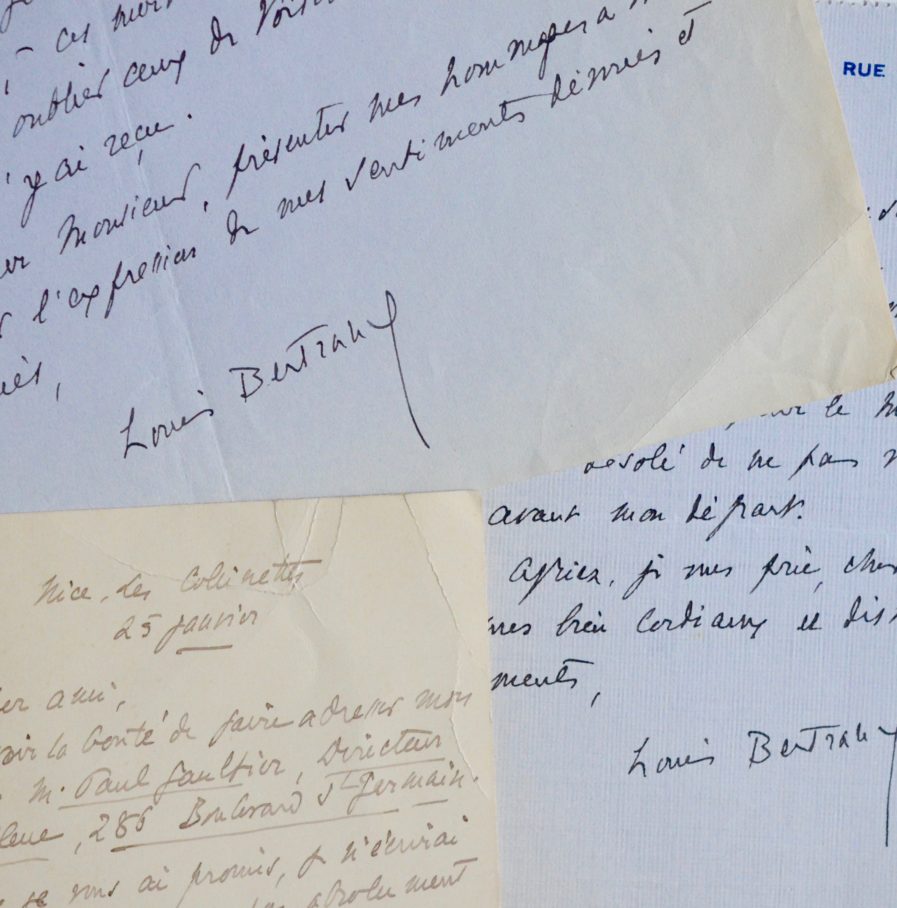 oublier ceux de Voisin
j'y ai reçu.
Monsieur, présenter mes hommages à
l'expression de mes sentiments dévoués et
Louis Bertrand
RUE
le
désolé de ne pas
avant mon départ.
Agréez, je vous prie, cher
mes bien cordiaux et
ments,
Louis Bertrand
Nice, Les Collinettes
25 janvier
cher ami,
avoir la bonté de faire adresser mon
M. Paul Gaultier, Directeur
Bleue, 286 Boulevard St Germain.
je vous ai promis, je n'écrirai
absolument